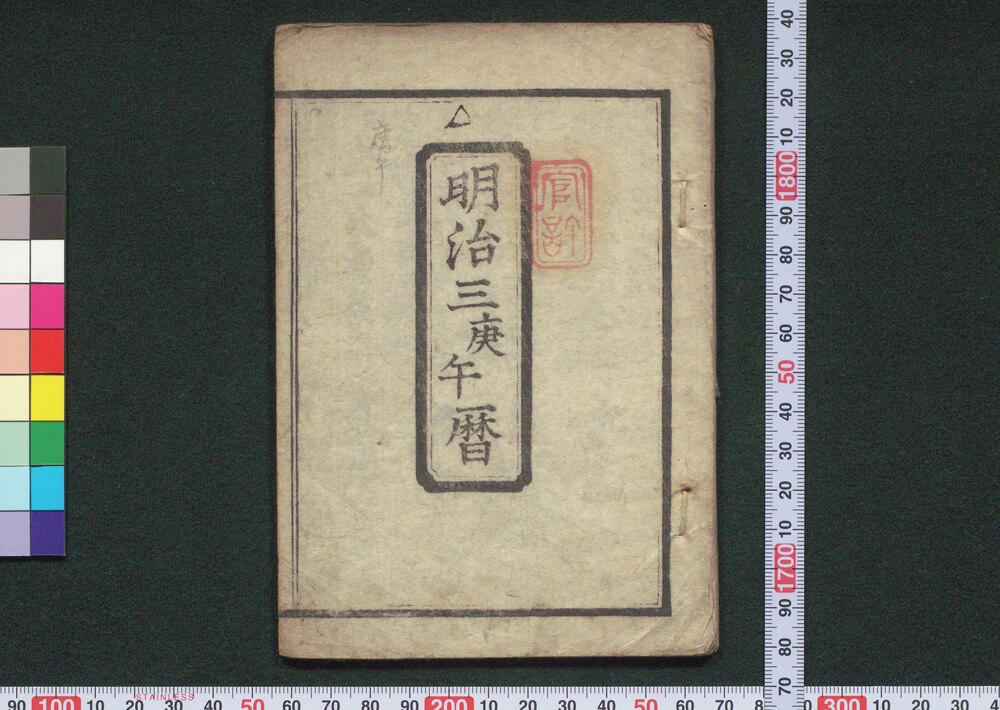 明治三庚午暦
官許
庚午
STAINLESS
90 100 10 20 30 40 50 60 70 80 90 200 10 20 30 40 50 60 70 80 90 300 10 20 30 4
40 30 20 10 1800 90 80 70 60 50 40 30 20 10 1700 90 80 70